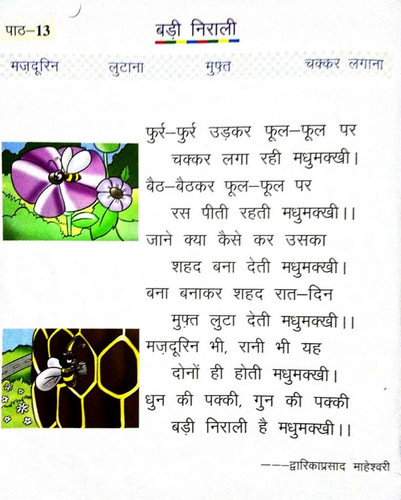 पाठ–13
बड़ी निराली
मज़दूरिन लुटाना मुफ़्त चक्कर लगाना
फुर्र–फुर्र उड़कर फूल–फूल पर
चक्कर लगा रही मधुमक्खी।
बैठ–बैठकर फूल–फूल पर
रस पीती रहती मधुमक्खी।।
जाने क्या कैसे कर उसका
शहद बना देती मधुमक्खी।
बना बनाकर शहद रात–दिन
मुफ़्त लुटा देती मधुमक्खी।।
मज़दूरिन भी, रानी भी यह
दोनों ही होती मधुमक्खी।
धुन की पक्की, गुन की पक्की
बड़ी निराली है मधुमक्खी।।
–––द्वारिकाप्रसाद माहेश्वरी